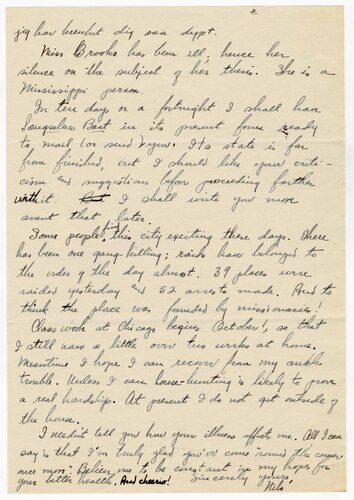 2
jig har brevkut dig saa dypt.
Miss Brooks has been ill, hence her
silence on the subject of her thesis. She is a
Mississippi person.
In ten days or a fortnight I shall have
Beat in its present form ready
to mail (or send) you. Its state is far
from finished, but I should like your criti-
cism and suggestions before proceeding farther
with it. I shall write you more
anent that later.
Some people find this city exciting these days. There
has been one gang-killing; raids have belonged to
the order of the day almost. 39 places were
raided yesterday and 52 arrests made. And to
think the place was founded by missionaries!
Class work at Chicago begins October 1, so that
I still have a little over two weeks at home.
Meantime I hope I can recover from my ankle
trouble. Unless I can house-hunting is likely to prove
a real hardship. At present I do not get outside of
the house.
I needn't tell you how your illness affects me. All I can
say is that I'm truly glad you've come 'round the corner
once more. Believe me to be constant in my hopes for
your better health. And cheerio! Sincerely yours,
Nils